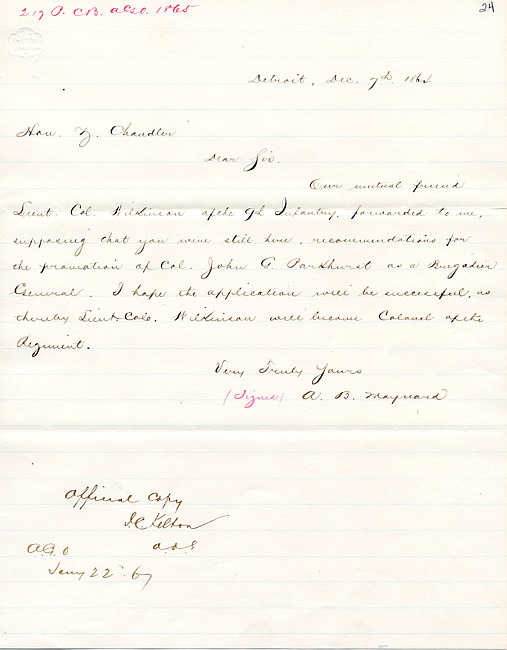 217 P. C.B. A.G.O. 1865
24
Detroit, Dec. 7th. 1864
Hon. Z. Chandler
Dear Sir.
Our mutual friend
Lieut. Col. Wilkinson of the 9th Infantry, forwarded to me,
supposing that you were still here, recommendations for
the promotion of Col. John G. Parkhurst as a Brigadier
General. I hope the application will be successful, as
thereby Lieut. Col. Wilkinson will become Colonel of the
Regiment.
Very Truly Yours
(Signed) A. B. Maynard
Official Copy
J.C. Kelton
A.G.O
Jany 22" 67